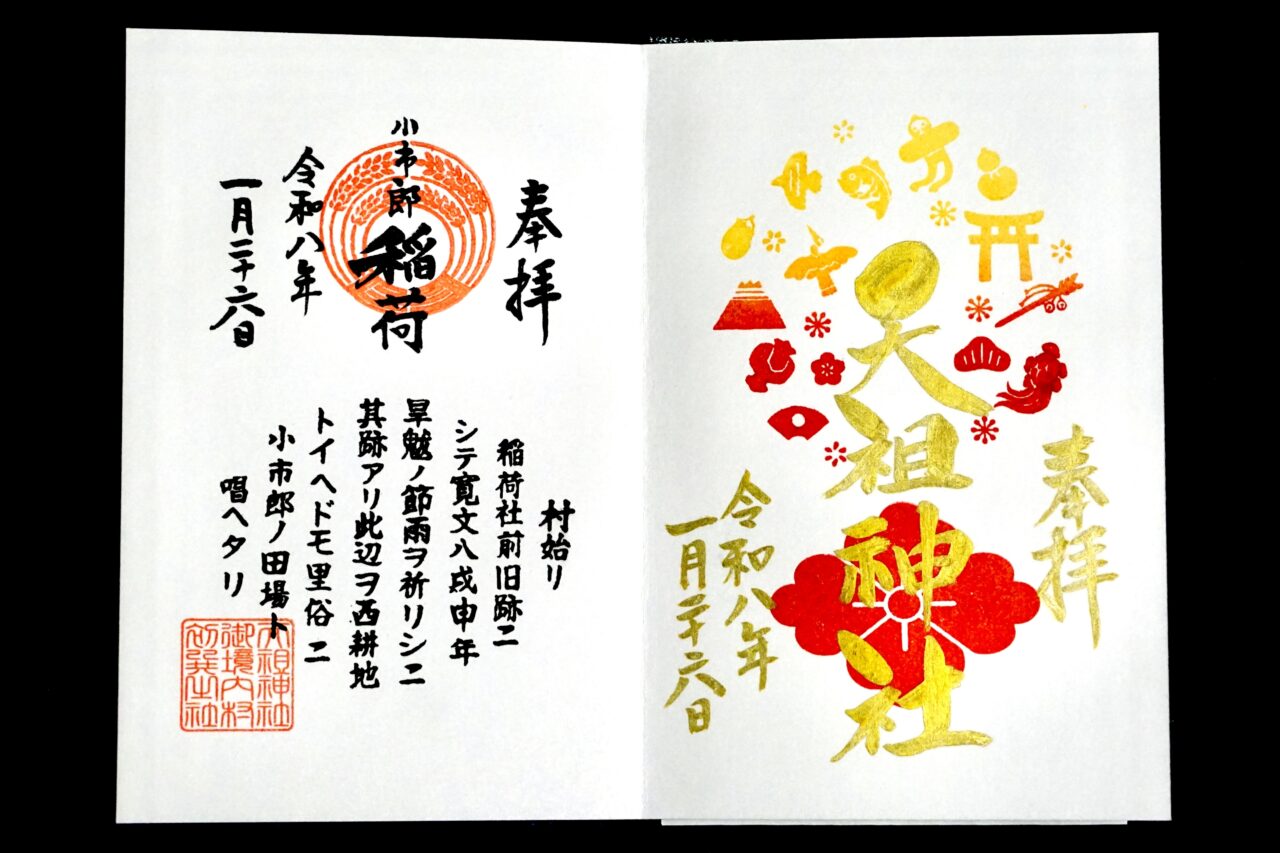 奉拝
天祖神社
令和八年
一月二十六日
奉拝
小市郎稲荷
令和八年
一月二十六日
村始リ
稲荷社前旧跡ニ
シテ寛文八戌申年
旱魃ノ節雨ヲ祈リシニ
其跡アリ此辺ヲ西耕地
トイヘドモ里俗ニ
小市郎ノ田場ト
唱ヘタリ
天祖神社
御境内村